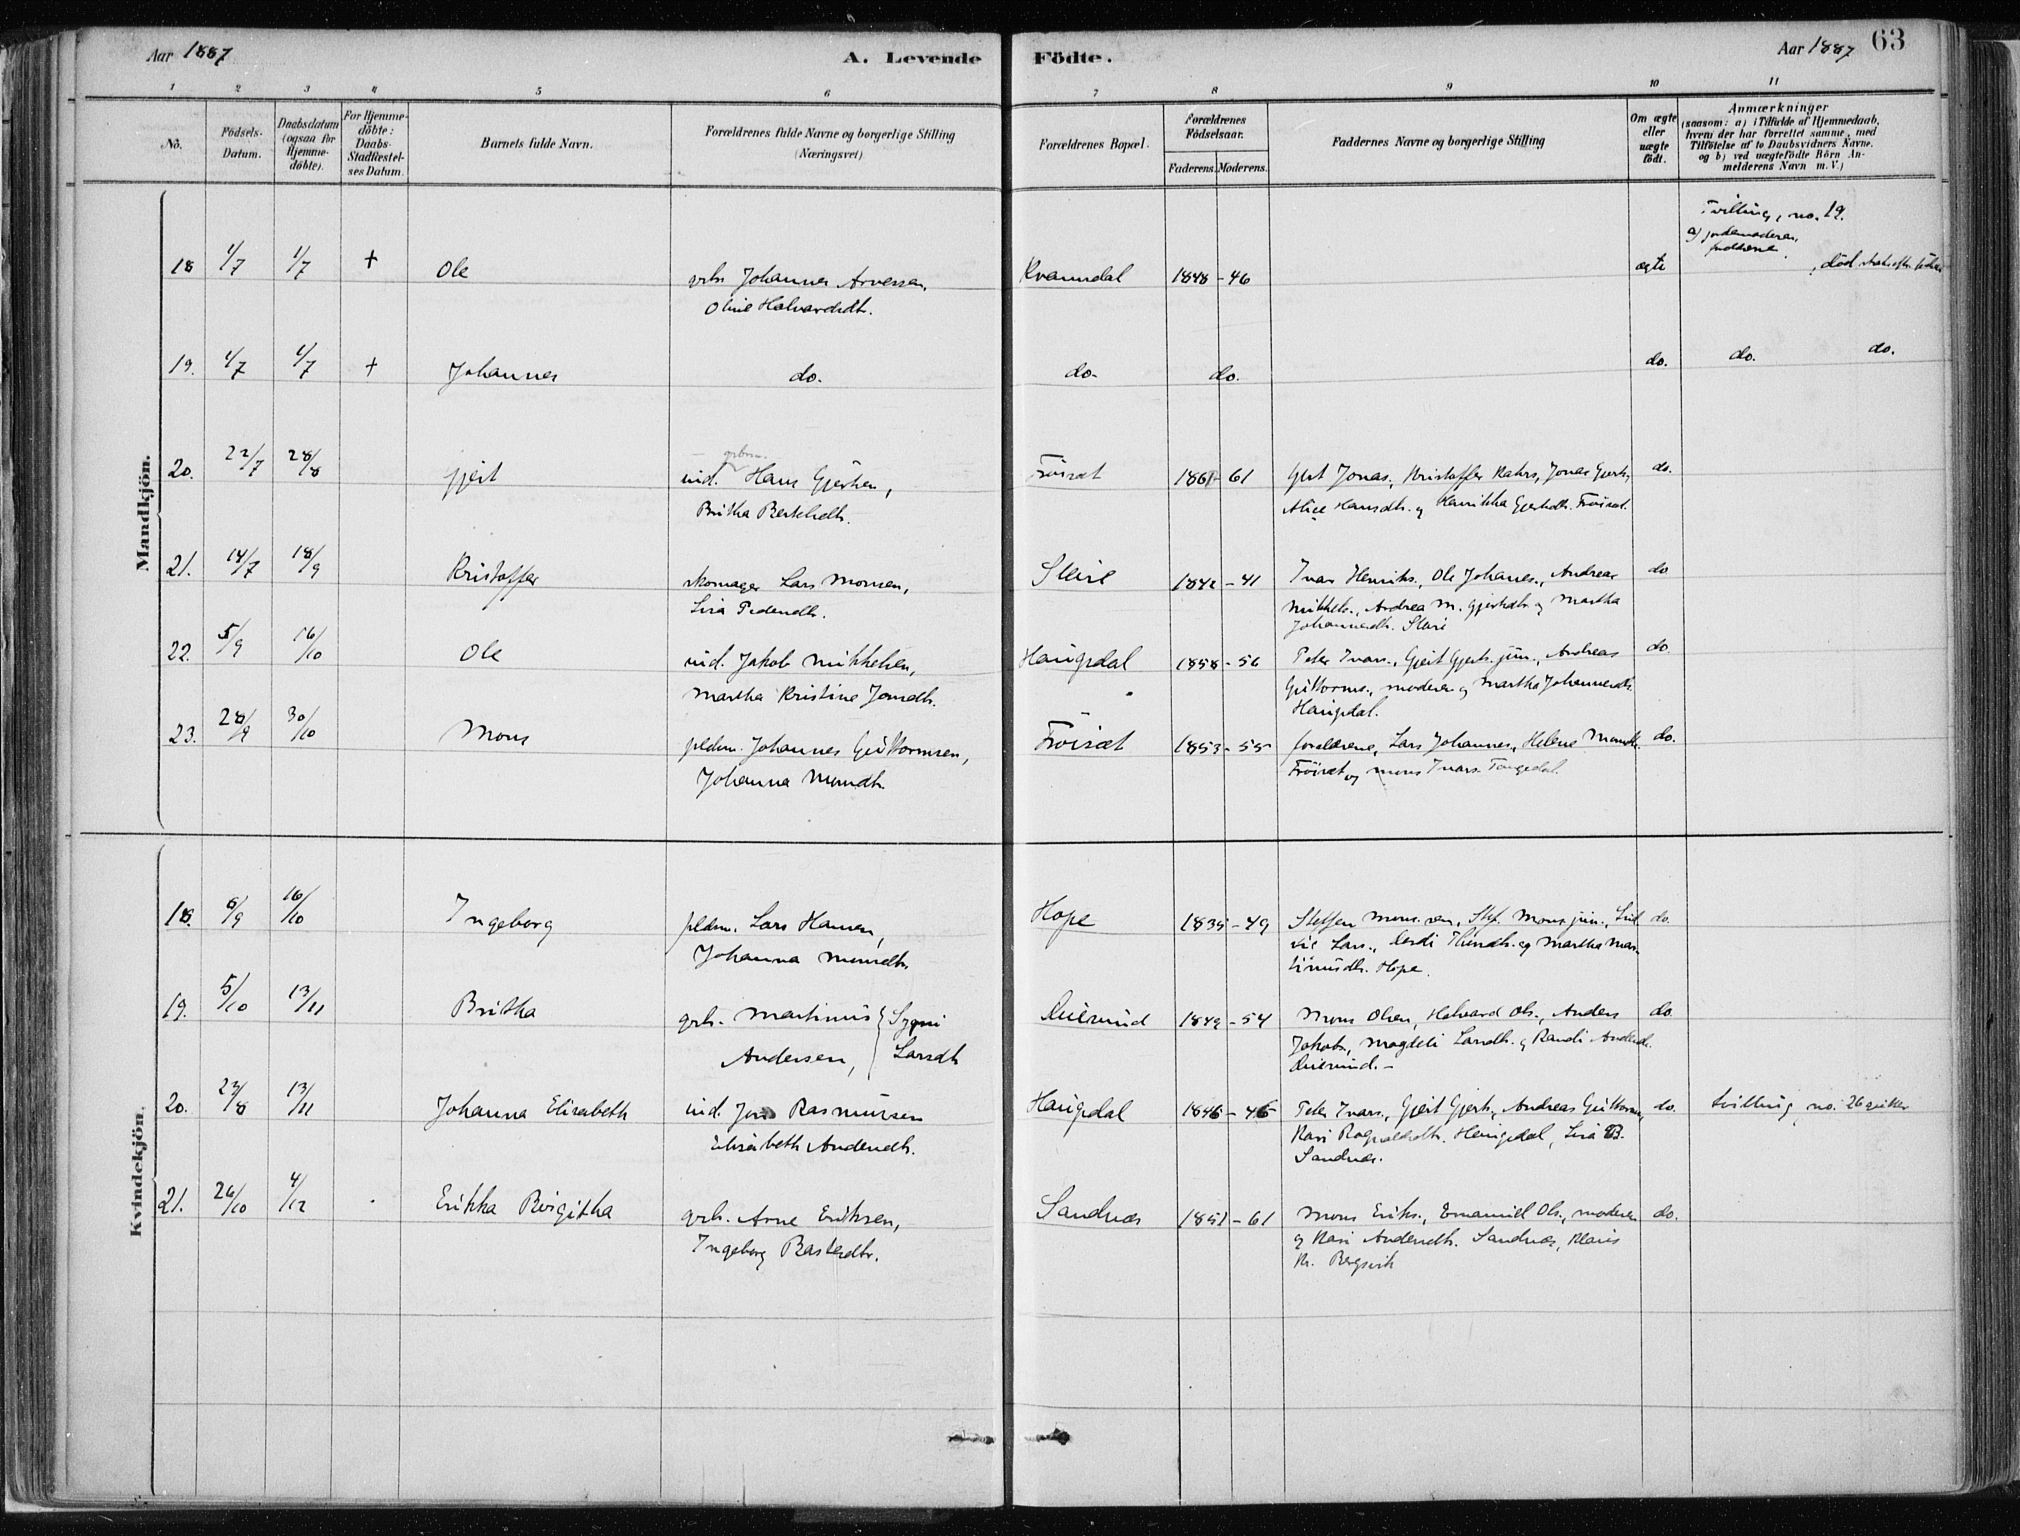 Aar 1887
A. Levende Födte.
Aar 1887 63
1 2 3 4 5 6 7 8 9 10 11
No.
Födsels-
Datum.
Daabsdatum
(ogsaa for
Hjemme-
döbte).
For Hjemme-
döbte:
Daabs-
Stadfæstel-
ses Datum.
Barnets fulde Navn.
Forældrenes fulde Navne og borgerlige Stilling
(Næringsvei)
Forældrenes Bopæl.
Forældrenes
Födselsaar.
Faderens. Moderens.
Faddernes Navne og borgerlige Stilling
Om ægte
eller
uægte
födt.
Anmærkninger
(saasom: a) i Tilfælde af Hjemmedaab,
hvem der har forrettet samme, med
Tilföielse af to Daabsvidners Navne,
og b) ved uægtefödte Börn An-
melderens Navn m. V.)
Mandkjön.
Tvilling, no. 19.
a) jordemoderen,
18 1/7 1/7 + Ole Johannes Arnessen, Kvamdal 1848 - 46 ægte , död
Oline Halvardsdtr.
19. 1/7 1/7 + Johannes do. do. do. do. do. do.
20. 22/7 28/8 Gjert ind. Hans Gjertsen, Fröiset 1861 - 61 Gjert Jonas., Kristoffer Rahrs., Jonas Gjerts., do.
Britha Bertelsdtr. Alice Hansdtr. og Gjertsdtr. Fröiset.
21. 14/7 18/9 Kristoffer skomager Lars Monsen, Sleire 1842 - 41 Ivar Henriks., Ole Johanes., Andreas do
Lisa Pedersdtr. Mikkels., Andrea M. Gjertsdtr. og Martha
Johannesdtr. Sleire
22. 5/9 16/10 Ole ind. Jakob Mikkelsen, Haugsdal 1858 - 56 Peter Ivars., Gjert Gjerts. jun., Andreas do.
Martha Kristine Jonsdtr. Guttorms., moderen og Martha Johannesdtr.
Haugsdal.
23. 28/9 30/10 Mons pldsm. Johannes Guttormsen, Fröiset 1853 - 55 forældrene, Lars Johannes., Helene Monsdtr. do.
Johanna Monsdtr. Fröiset og Mons Ivars. Tangedal.
Kvindekjön.
18. 6/9 16/10 Ingeborg pldsm. Lars Hansen, Hope 1835 - 49 Steffen Mons. sen., Stef. Mons. jun., Lud- do.
Johanna Monsdtr. vik Lars., og Martha Mar-
tinusdtr. Hope.
19. 5/10 13/11 Britha grbr. Martinus Synni 1849 - 54 Mons Olsen, Halvard Ols., Anders do.
Andersen, Larsdtr Jakobs., Magdeli Larsdtr. og Randi Andersdtr.
20. 23/8 13/11 Johanna Elisabeth ind. Jon Rasmussen Haugsdal 1846 - 46 Peter Ivars., Gjert Gjerts., Andreas Guttorms., do. tvilling, no. 26
Elisabeth Andersdtr. Kari Ragnaldsdtr. Haugsdal, Lisa B.
Sandnæs.
21. 26/10 4/12 Erikka Birgitha grbr. Arne Eriksen, Sandnæs 1851 - 61 Mons Eriks., Emanuel Ols., moderen do.
Ingeborg Rasmusdtr. og Kari Andersdtr. Sandnæs, Klaus
Kr. Bergsvik